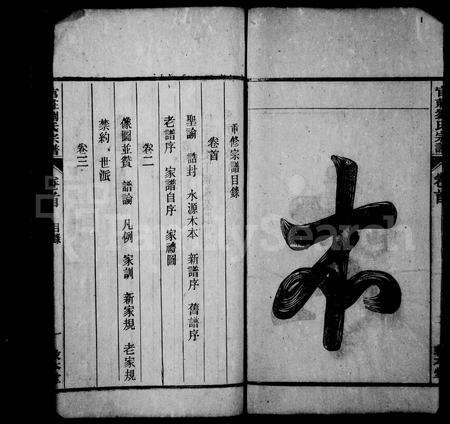 本
重修宗譜目錄
卷首
聖諭 誥封 水源木本 新譜序 舊譜序
老譜序 家譜自序 家禮圖
卷二
像圖並贊 譜論 凡例 家訓 新家規 老家規
禁約 世派
卷三
官莊劉氏宗譜 卷首 目錄 一
FamilySearch